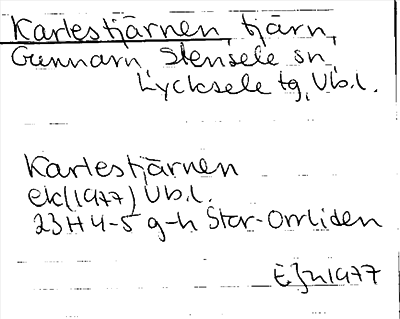 Karlestjärnen, tjärn,
Gunnarn, Stensele sn,
Lycksele tg, Vb.l.
Karlestjärnen
ek(1977) Vb.l.
23H 4-5 g-h Stor-Orrliden
EJn 1977